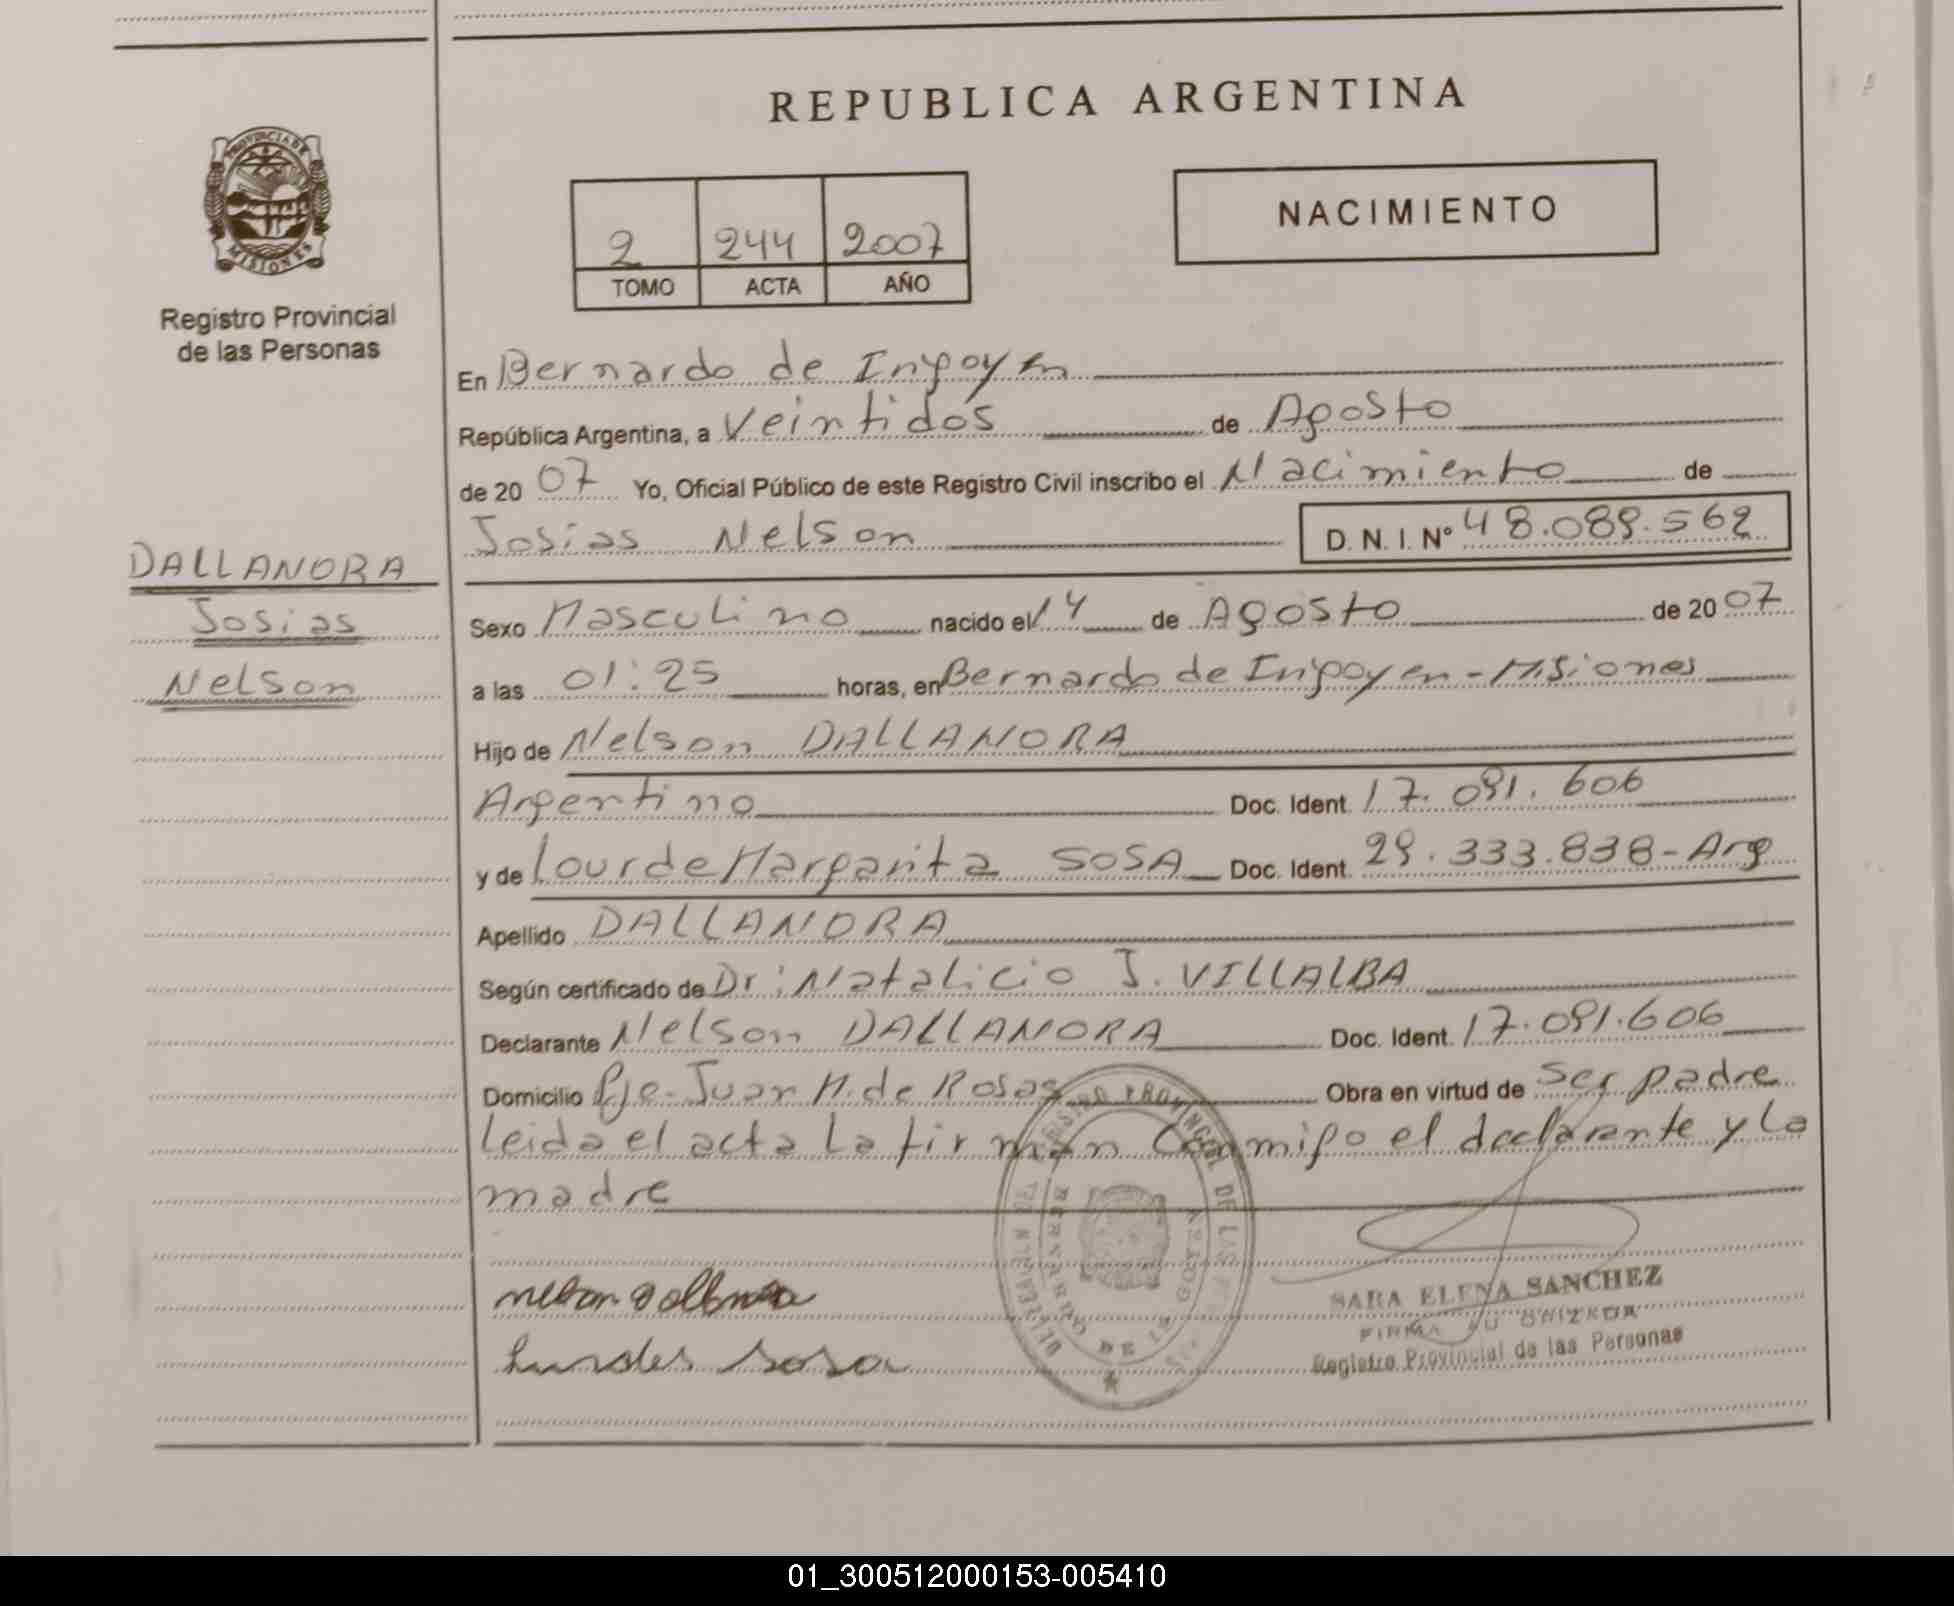 REPUBLICA ARGENTINA
PROVINCIA DE
MISIONES
Registro Provincial
de las Personas
2 244 2007
TOMO ACTA AÑO
NACIMIENTO
En Bernardo de Irigoyen
República Argentina, a Veintidos de Agosto
de 2007 Yo, Oficial Público de este Registro Civil inscribo el Nacimiento de
Josias Nelson D. N. I. Nº 48.089.562
DALLANORA
Josias
Nelson
Sexo Masculino nacido el 14 de Agosto de 2007
a las 01:25 horas, en Bernardo de Irigoyen - Misiones
Hijo de Nelson DALLANORA
Argentino Doc. Ident. 17.091.606
y de Lourde Margarita SOSA Doc. Ident. 29.333.838 - Arg
Apellido DALLANORA
Según certificado de Dr: Natalicio J. VILLALBA
Declarante Nelson DALLANORA Doc. Ident. 17.091.606
Domicilio Pje. Juan M. de Rosas Obra en virtud de Ser padre
leida el acta la firman conmigo el declarante y la
madre
nelson dallanora
lurdes sosa
SARA ELENA SANCHEZ
FIRMA AUTORIZADA
Registro Provincial de las Personas
01_300512000153-005410